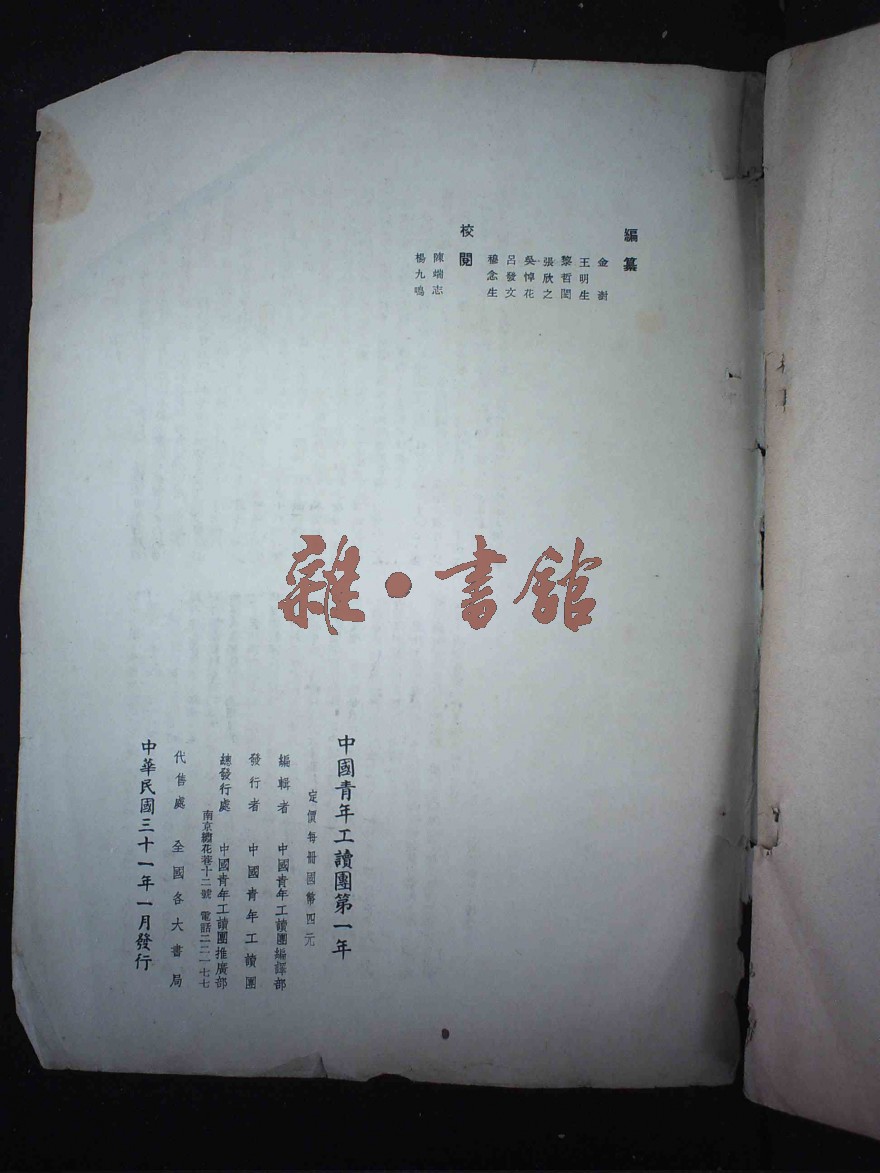 編纂
金澍
王明生
黎哲閔
張欣之
吳悼花
呂發文
穆念生
校閱
陳端志
楊九鳴
雜·書館
中國青年工讀團第一年
定價每冊國幣四元
編輯者 中國青年工讀團編譯部
發行者 中國青年工讀團
總發行處 中國青年工讀團推廣部
南京繡花巷十二號 電話二二一七七
代售處 全國各大書局
中華民國三十一年一月發行